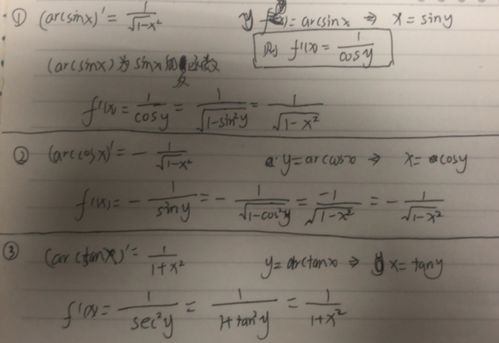 ① (arcsinx)' = 1/√(1-x²)    y = arcsinx ⇒ x = siny
则 f'(x) = 1/cosy
(arcsinx) 为 sinx 的 函数
f'(x) = 1/cosy = 1/√(1-sin²y) = 1/√(1-x²)
② (arccosx)' = - 1/√(1-x²)    y = arccosx ⇒ x = cosy
f'(x) = - 1/siny = - 1/√(1-cos²y) = -1/√(1-x²) = - 1/√(1-x²)
③ (arctanx)' = 1/(1+x²)    y = arctanx ⇒ x = tany
f'(x) = 1/sec²y = 1/(1+tan²y) = 1/(1+x²)